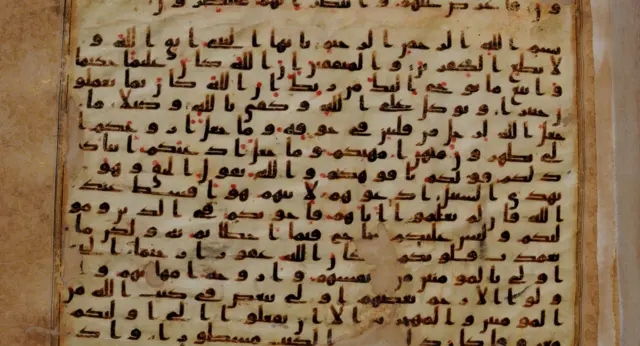 و ن فاعرض عنهم و انتظر انهم منتظرو ن
بسم الله الرحمن الرحيم يايها النبي اتق الله و
لا تطع الكفرين و المنفقين ان الله كان عليما حكيما
و اتبع ما يوحى اليك من ربك ان الله كان بما تعملو
ن خبيرا و توكل على الله و كفى بالله وكيلا ما
جعل الله لرجل من قلبين في جوفه و ما جعل ازوجكم ا
لى تظهرون منهن امهتكم و ما جعل ادعياكم ابناكم
ذلكم قولكم بافوهكم و الله يقول الحق و هو
يهدي السبيل ادعوهم لابائهم هو اقسط عند
الله فان لم تعلموا اباهم فاخونكم في الدين و مو
ليكم و ليس عليكم جناح فيما اخطاتم به و لكن ما
تعمدت قلوبكم كان الله غفورا رحيما النبي
اولى بالمومنين من انفسهم و ازوجه امهتهم و ا
ولوا الارحام بعضهم اولى ببعض في كتب الله من
المومنين و المهجرين الا ان تفعلوا الى اوليكم
معروفا كان الكتب مسطورا و اذ